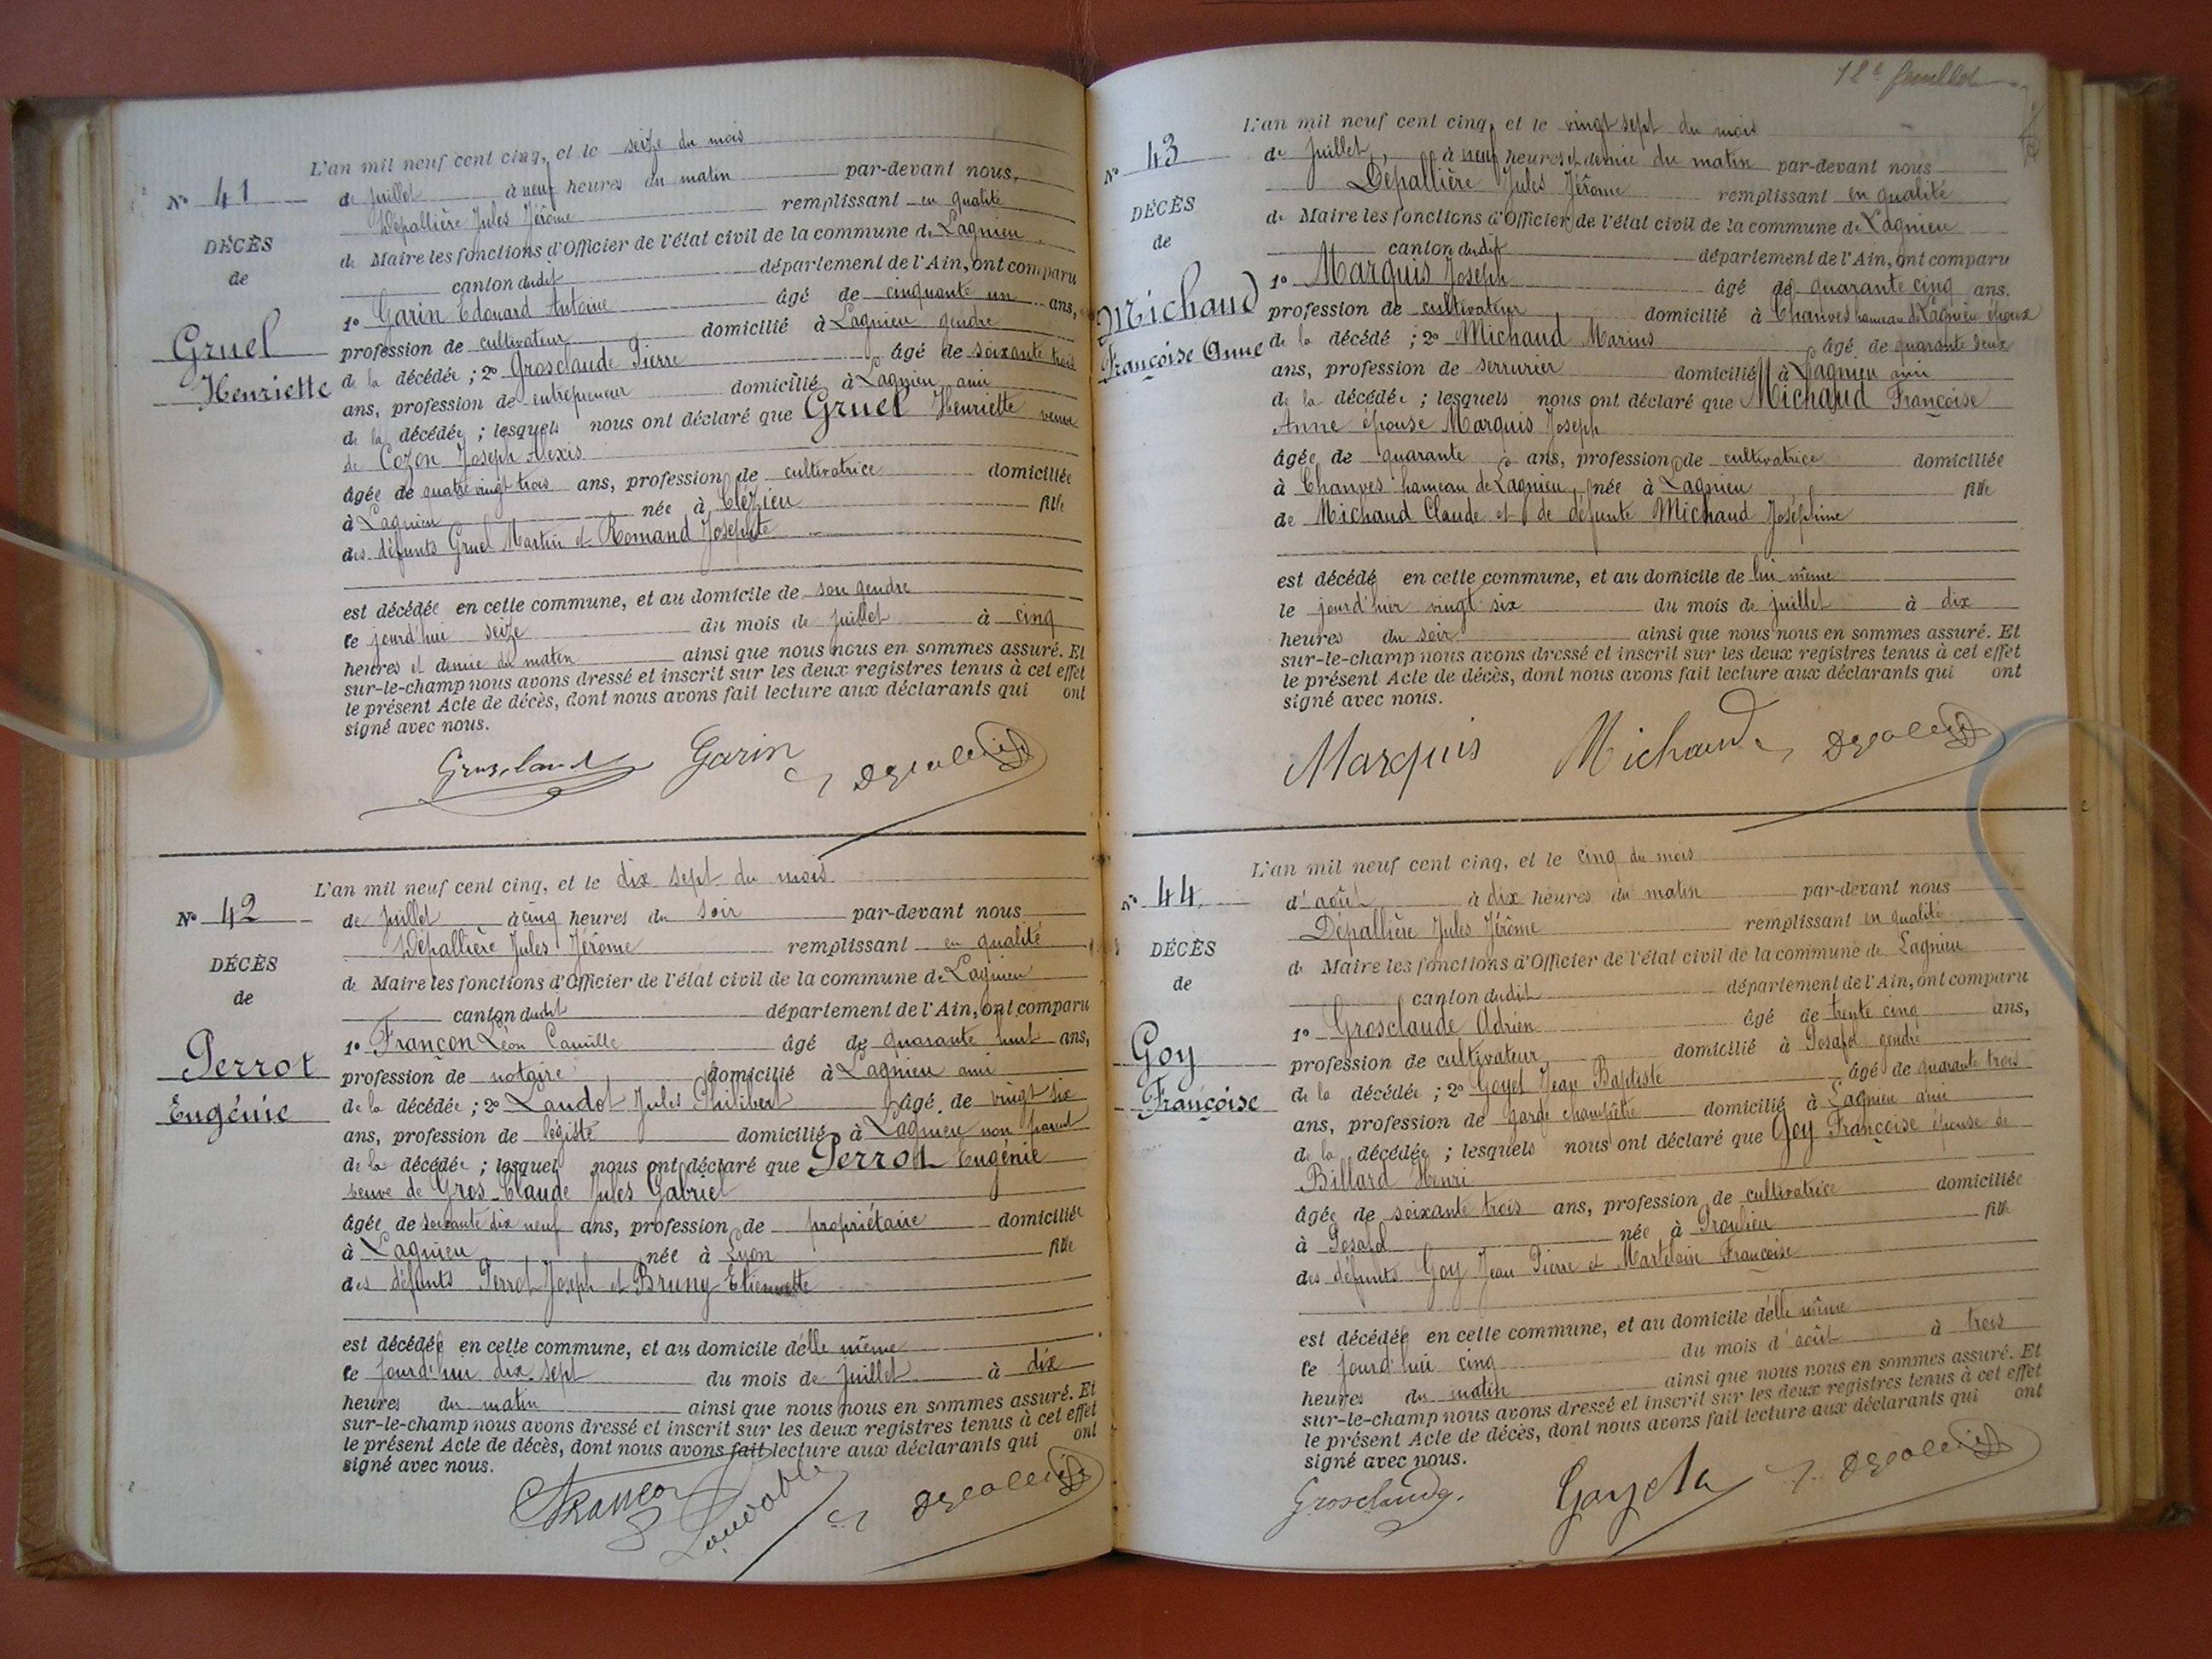 N° 41
DÉCÈS
de
Gruel
Henriette
L'an mil neuf cent cinq, et le seize du mois
de juillet à neuf heures du matin par-devant nous,
Dépallière Jules Jérôme remplissant en qualité
de Maire les fonctions d'Officier de l'état civil de la commune de Lagnieu
canton dudit département de l'Ain, ont comparu
1° Garin Edouard Antoine âgé de cinquante un ans,
profession de cultivateur domicilié à Lagnieu gendre
de la décédée ; 2° Grosclaude Pierre âgé de soixante trois
ans, profession de entrepreneur domicilié à Lagnieu ami
de la décédée ; lesquels nous ont déclaré que Gruel Henriette veuve
de Cozon Joseph Alexis
âgée de quatre vingt trois ans, profession de cultivatrice domiciliée
à Lagnieu née à Clézieu fille
des défunts Gruel Martin et Romand Josephte
est décédée en cette commune, et au domicile de son gendre
le jourd'hui seize du mois de juillet à cinq
heures et demie du matin ainsi que nous nous en sommes assuré. Et
sur-le-champ nous avons dressé et inscrit sur les deux registres tenus à cet effet
le présent Acte de décès, dont nous avons fait lecture aux déclarants qui ont
signé avec nous.
Garin
N° 42
DÉCÈS
de
Perrot
Eugénie
L'an mil neuf cent cinq, et le dix sept du mois
de juillet à cinq heures du soir par-devant nous
Dépallière Jules Jérôme remplissant en qualité
de Maire les fonctions d'Officier de l'état civil de la commune de Lagnieu
canton dudit département de l'Ain, ont comparu
1° Françon Léon Camille âgé de quarante huit ans,
profession de notaire domicilié à Lagnieu ami
de la décédée ; 2° Laudot Jules Philibert âgé de vingt six
ans, profession de légiste domicilié à Lagnieu non parent
de la décédée ; lesquels nous ont déclaré que Perrot Eugénie
veuve de Gros-Claude Jules Gabriel
âgée de soixante dix neuf ans, profession de propriétaire domiciliée
à Lagnieu née à Lyon fille
des défunts Perrot Joseph et Bruny Etiennette
est décédée en cette commune, et au domicile d'elle même
le jourd'hui dix sept du mois de juillet à dix
heures du matin ainsi que nous nous en sommes assuré. Et
sur-le-champ nous avons dressé et inscrit sur les deux registres tenus à cet effet
le présent Acte de décès, dont nous avons fait lecture aux déclarants qui ont
signé avec nous.
Françon
12e feuillet
N° 43
DÉCÈS
de
Michaud
Françoise Anne
L'an mil neuf cent cinq, et le vingt sept du mois
de juillet, à neuf heures et demie du matin par-devant nous
Dépallière Jules Jérôme remplissant en qualité
de Maire les fonctions d'Officier de l'état civil de la commune de Lagnieu
canton dudit département de l'Ain, ont comparu
1° Marquis Joseph âgé de quarante cinq ans.
profession de cultivateur domicilié à Chanves hameau de Lagnieu époux
de la décédé ; 2° Michaud Marius âgé de quarante deux
ans, profession de serrurier domicilié à Lagnieu ami
de la décédée ; lesquels nous ont déclaré que Michaud Françoise
Anne épouse Marquis Joseph
âgée de quarante ans, profession de cultivatrice domiciliée
à Chanves hameau de Lagnieu, née à Lagnieu fille
de Michaud Claude et de défunte Michaud Joséphine
est décédé en cette commune, et au domicile de lui même
le jourd'hier vingt six du mois de juillet à dix
heures du soir ainsi que nous nous en sommes assuré. Et
sur-le-champ nous avons dressé et inscrit sur les deux registres tenus à cet effet
le présent Acte de décès, dont nous avons fait lecture aux déclarants qui ont
signé avec nous.
Marquis Michaud
N° 44
DÉCÈS
de
Goy
Françoise
L'an mil neuf cent cinq, et le cinq du mois
d'août à dix heures du matin par-devant nous
Dépallière Jules Jérôme remplissant en qualité
de Maire les fonctions d'Officier de l'état civil de la commune de Lagnieu
canton dudit département de l'Ain, ont comparu
1° Grosclaude Adrien âgé de trente cinq ans,
profession de cultivateur domicilié à Posafol gendre
de la décédée ; 2° Goyet Jean Baptiste âgé de quarante trois
ans, profession de garde champêtre domicilié à Lagnieu ami
de la décédée ; lesquels nous ont déclaré que Goy Françoise épouse de
Billard Henri
âgée de soixante trois ans, profession de cultivatrice domiciliée
à Posafol née à Proulieu fille
des défunts Goy Jean Pierre et Martelain Françoise
est décédée en cette commune, et au domicile d'elle même
le jourd'hui cinq du mois d'août à trois
heures du matin ainsi que nous nous en sommes assuré. Et
sur-le-champ nous avons dressé et inscrit sur les deux registres tenus à cet effet
le présent Acte de décès, dont nous avons fait lecture aux déclarants qui ont
signé avec nous.
Grosclaude